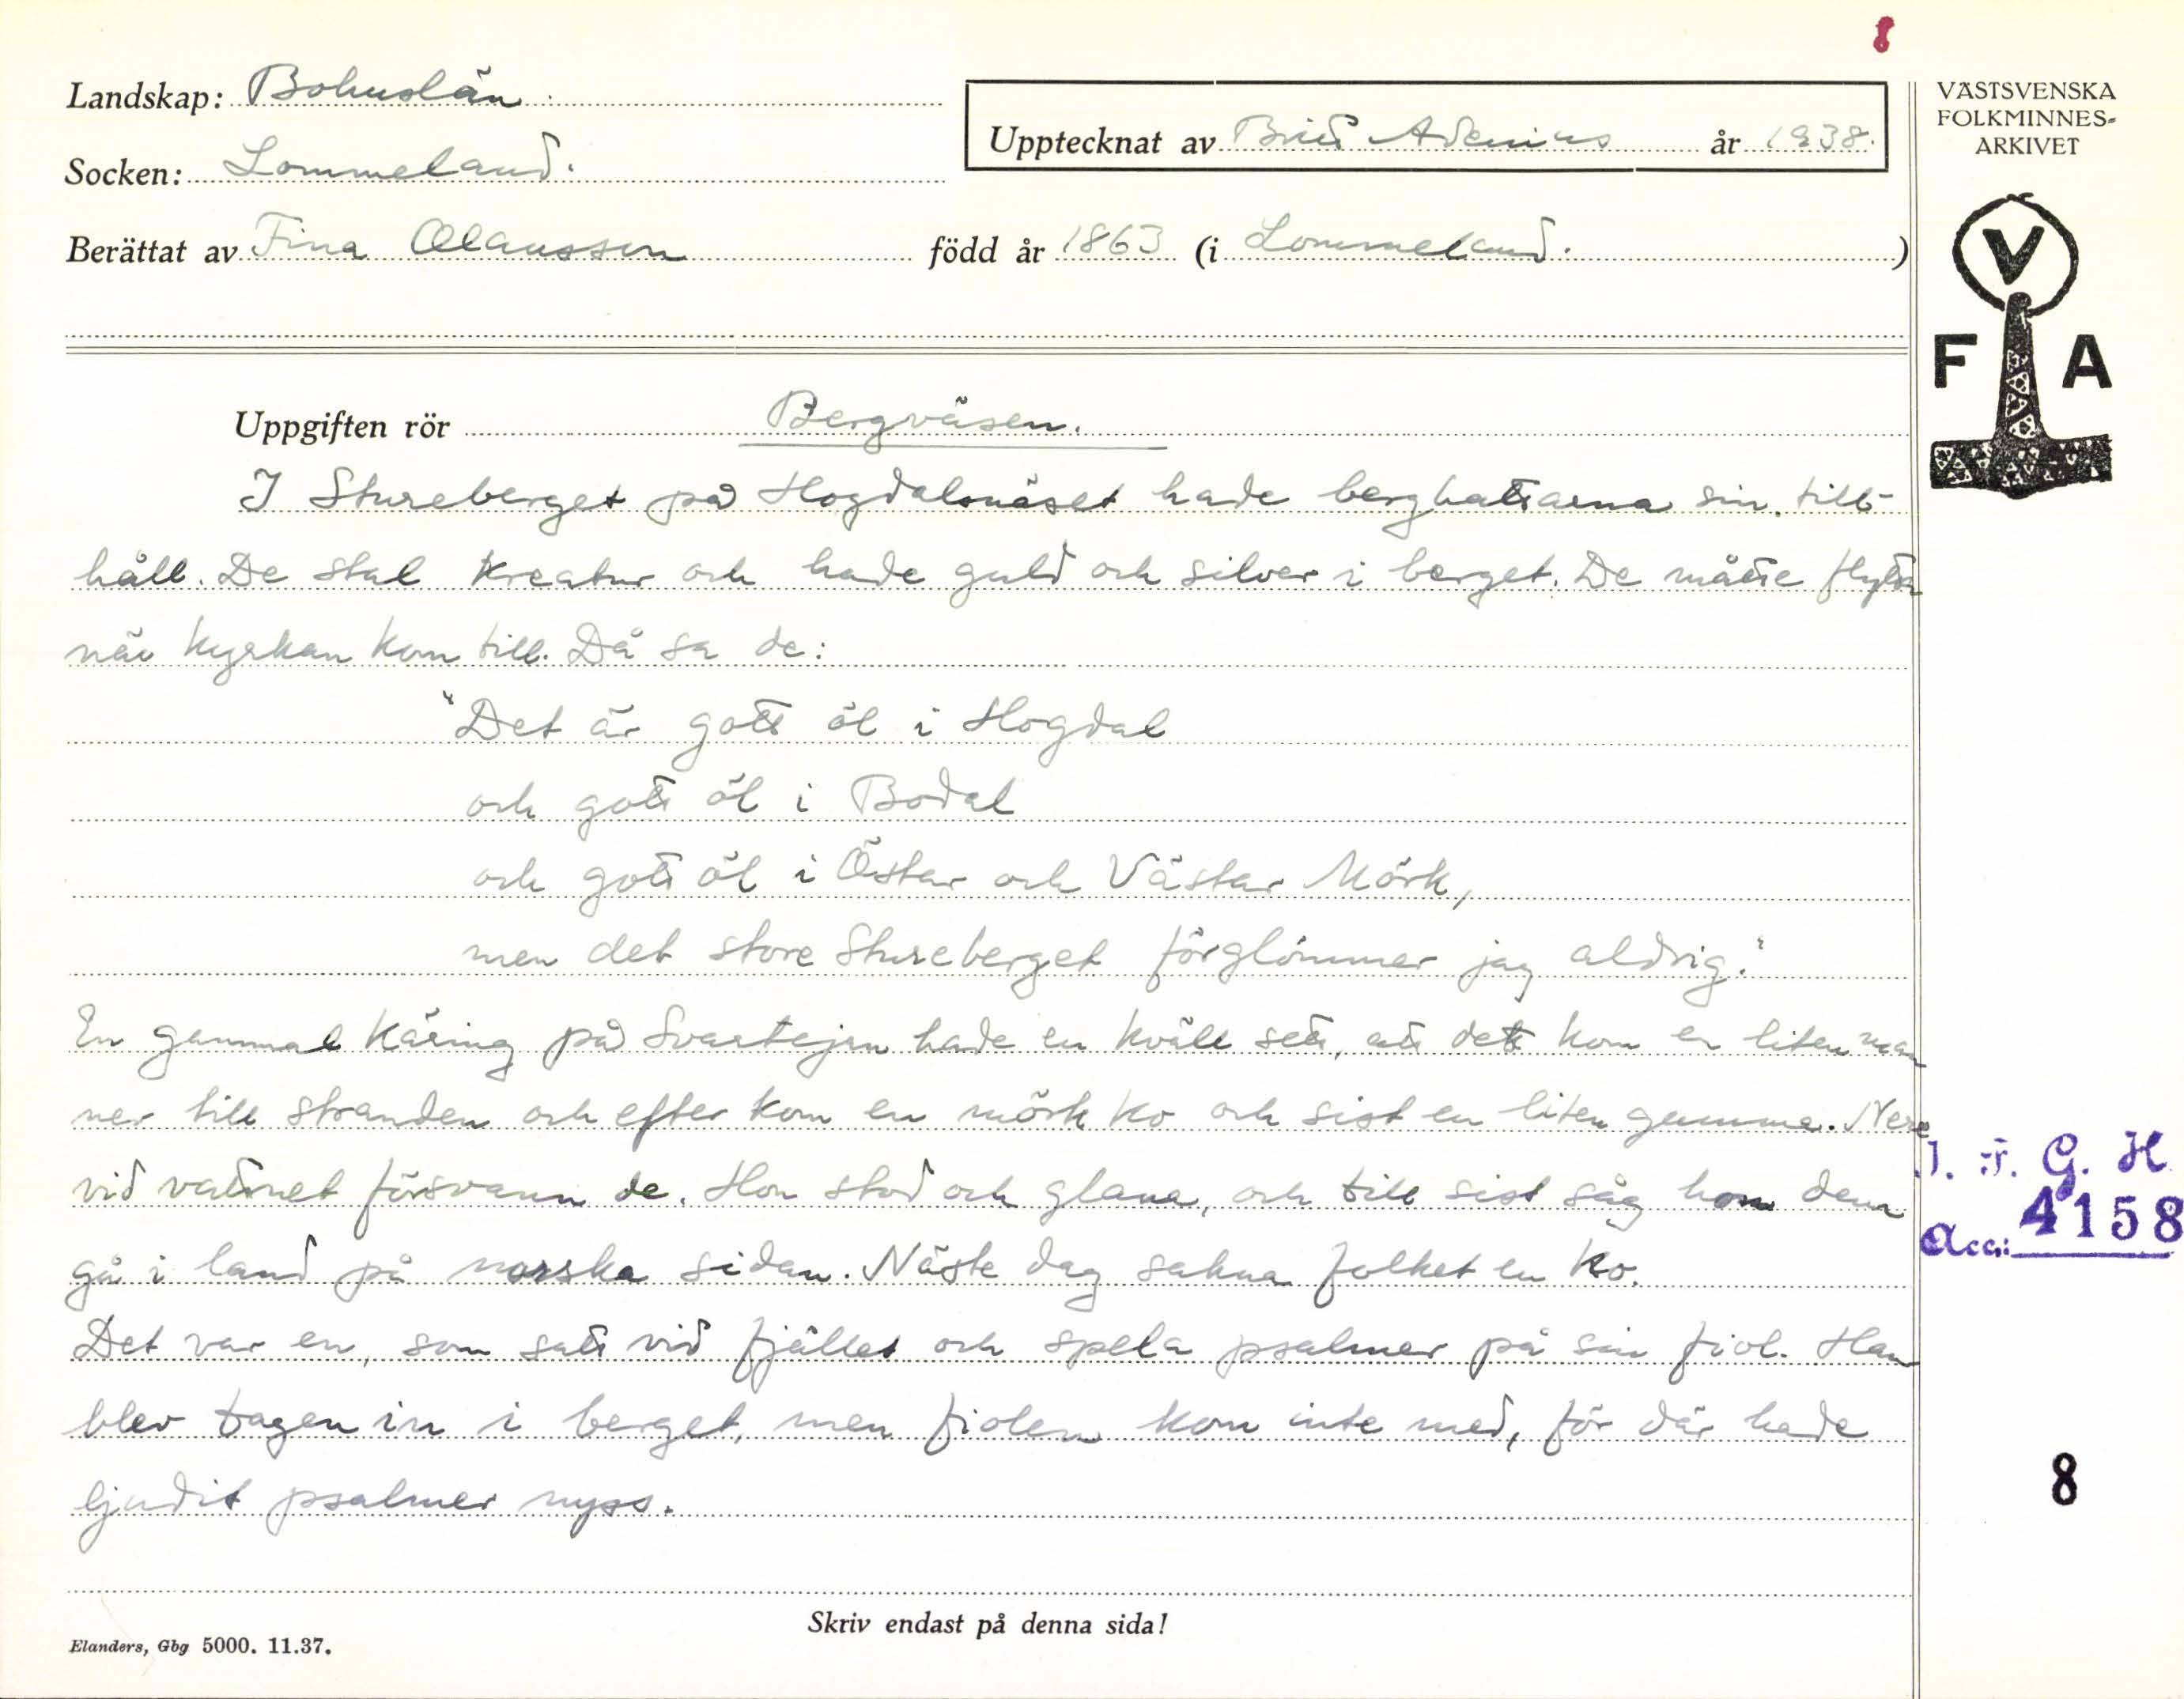 8
Landskap: Bohuslän.
Socken: Lommeland.
Upptecknat av Britt Adenius år 1938.
Berättat av Fina Olausson född år 1863 (i Lommeland.)
VÄSTSVENSKA
FOLKMINNES-
ARKIVET
V
F A
Uppgiften rör Bergväsen.
I Stureberget på Hogdalsnäset hade berghattarna sin till-
håll. De stal kreatur och hade guld och silver i berget. De måtte flytta
när kyrkan kom till. Då sa de:
"Det är gott öl i Hogdal
och gott öl i Bodal
och gott öl i Östar och Västar Mörk,
men det store Stureberget förglömmer jag aldrig."
En gammal käring på Svartejen hade en kväll sett, att det kom en liten man
ner till stranden och efter kom en mörk ko och sist en liten gumma. Nere
vid vattnet försvann de. Hon stod och glana, och till sist såg hon dem
gå i land på norska sidan. Näste dag sakna folket en ko.
Det var en, som satt vid fjället och spela psalmer på sin fiol. Han
blev tagen in i berget, men fiolen kom inte med, för där hade
ljudit psalmer nyss.
I. F. G. H.
Acc: 4158
8
Skriv endast på denna sida!
Elanders, Gbg 5000. 11.37.